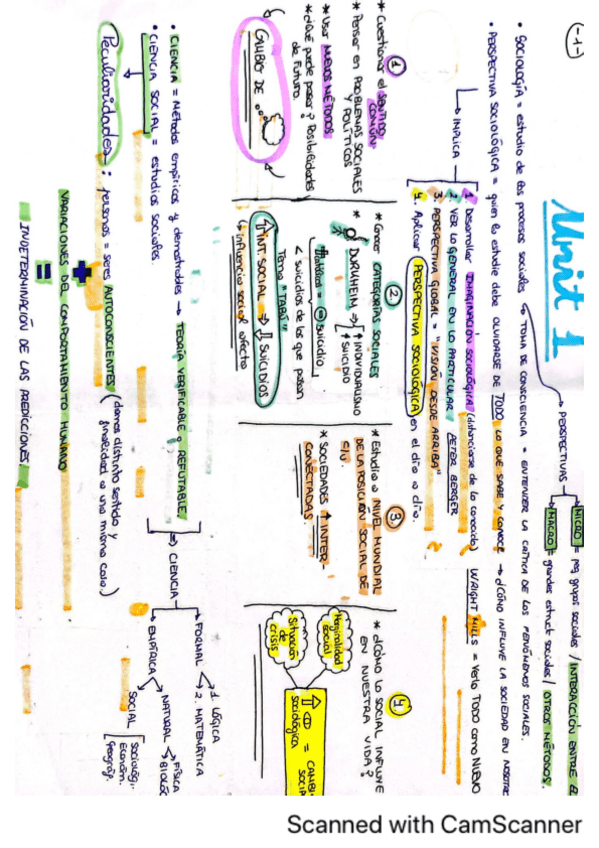 -1-
Unit 1
PERSPECTIVAS
MICRO = pqs grupos sociales / INTERACCIÓN ENTRE
MACRO = grandes estruct sociales / OTROS MÉTODOS.
• SOCIOLOGÍA = estudio de los procesos sociales → TOMA DE CONSCIENCIA = ENTENDER LA CRÍTICA DE LOS FENÓMENOS SOCIALES.
• PERSPECTIVA SOCIOLÓGICA = quien la estudie debe OLVIDARSE DE TODO LO QUE SABE Y CONOCE → ¿CÓMO INFLUYE LA SOCIEDAD EN NOSOTR
IMPLICA
1. Desarrollar IMAGINACIÓN SOCIOLÓGICA (distanciarse de lo conocido) WRIGHT MILLS = Verlo TODO como NUEVO
2. VER LO GENERAL EN LO PARTICULAR PETER BERGER
3. PERSPECTIVA GLOBAL = "VISIÓN DESDE ARRIBA"
4. Aplicar PERSPECTIVA SOCIOLÓGICA en el día a día.
1
* Cuestionar el SENTIDO
COMÚN
* Pensar en PROBLEMAS SOCIALES
Y POLÍTICOS
* Usar NUEVOS MÉTODOS
* ¿QUÉ puede pasar? Posibilidades
de futuro
CAMBIO DE ...
2
* Crear CATEGORÍAS SOCIALES
* DURKHEIM ⇒ ↑ INDIVIDUALISMO
↑ SUICIDIO
= suicidio
< suicidios de los que pasan
Tema "TABÚ"
⇑ INT SOCIAL → ⇓ SUICIDIOS
↳ influencia social afecta
3
* Estudia a NIVEL MUNDIAL
DE LA POSICIÓN SOCIAL DE
C/U
* SOCIEDADES ↑ INTER
CONECTADAS
4
* ¿CÓMO LO SOCIAL INFLUYE
EN NUESTRA VIDA?
Marginalidad
social
Situación
de
crisis
= CAMBI
sociológica SOCIA
• CIENCIA = Métodos empíricos y demostrados → TEORÍA VERIFICABLE o REFUTABLE
• CIENCIA SOCIAL = estudios sociales.
⇒ CIENCIA
FORMAL
1. LÓGICA
2. MATEMÁTICA
EMPÍRICA
NATURAL
FÍSICA
BIOLOG
SOCIAL
Sociologi.
Económ.
Geográf.
Peculiaridades: personas = seres AUTOCONSCIENTES (damos distinto sentido y
finalidad a una misma cosa)
+
VARIACIONES DEL COMPORTAMIENTO HUMANO
=
INDETERMINACIÓN DE LAS PREDICCIONES.
Scanned with CamScanner